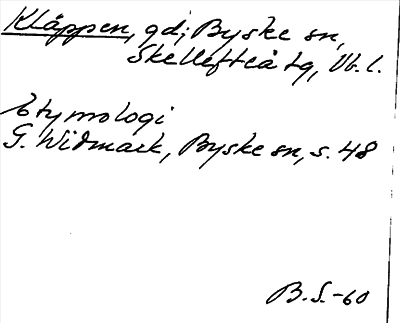 Kläppen, gd; Byske sn,
Skellefteå tg, Vb. l.
Etymologi
G. Widmark, Byske sn, s. 48
B.S.-60